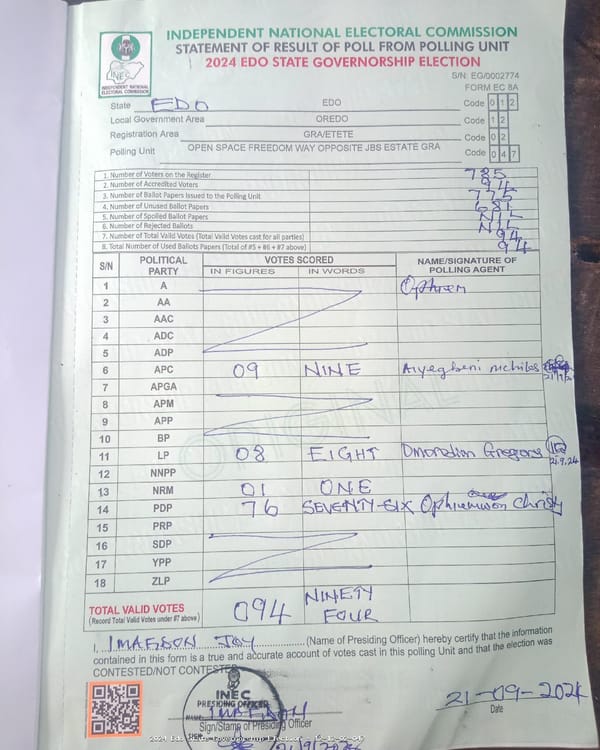 INDEPENDENT NATIONAL ELECTORAL COMMISSION
STATEMENT OF RESULT OF POLL FROM POLLING UNIT
2024 EDO STATE GOVERNORSHIP ELECTION
INEC
INDEPENDENT NATIONAL ELECTORAL COMMISSION
S/N: EG/0002774
FORM EC 8A
State EDO EDO Code 0 1 2
Local Government Area OREDO Code 1 2
Registration Area GRA/ETETE Code 0 2
Polling Unit OPEN SPACE FREEDOM WAY OPPOSITE JBS ESTATE GRA Code 0 4 7
1. Number of Voters on the Register 785
2. Number of Accredited Voters 94
3. Number of Ballot Papers Issued to the Polling Unit 775
4. Number of Unused Ballot Papers 681
5. Number of Spoiled Ballot Papers NIL
6. Number of Rejected Ballots NIL
7. Number of Total Valid Votes (Total Valid Votes cast for all parties) 94
8. Total Number of Used Ballots Papers (Total of #5 + #6 + #7 above) 94
S/N POLITICAL PARTY VOTES SCORED NAME/SIGNATURE OF POLLING AGENT
IN FIGURES IN WORDS
1 A
2 AA
3 AAC
4 ADC
5 ADP
6 APC 09 NINE Aiyegbeni
7 APGA
8 APM
9 APP
10 BP
11 LP 08 EIGHT Gregory 21.9.24
12 NNPP
13 NRM 01 ONE
14 PDP 76 SEVENTY-SIX Christy
15 PRP
16 SDP
17 YPP
18 ZLP
ORIGINAL
TOTAL VALID VOTES 094 NINETY FOUR
(Record Total Valid Votes under #7 above)
I, IMAFIDON JOY (Name of Presiding Officer) hereby certify that the information
contained in this form is a true and accurate account of votes cast in this polling Unit and that the election was
CONTESTED/NOT CONTESTED
INEC
PRESIDING OFFICER
NAME:
Sign/Stamp of Presiding Officer
SIGN
21/9/2024
21-09-2024
Date